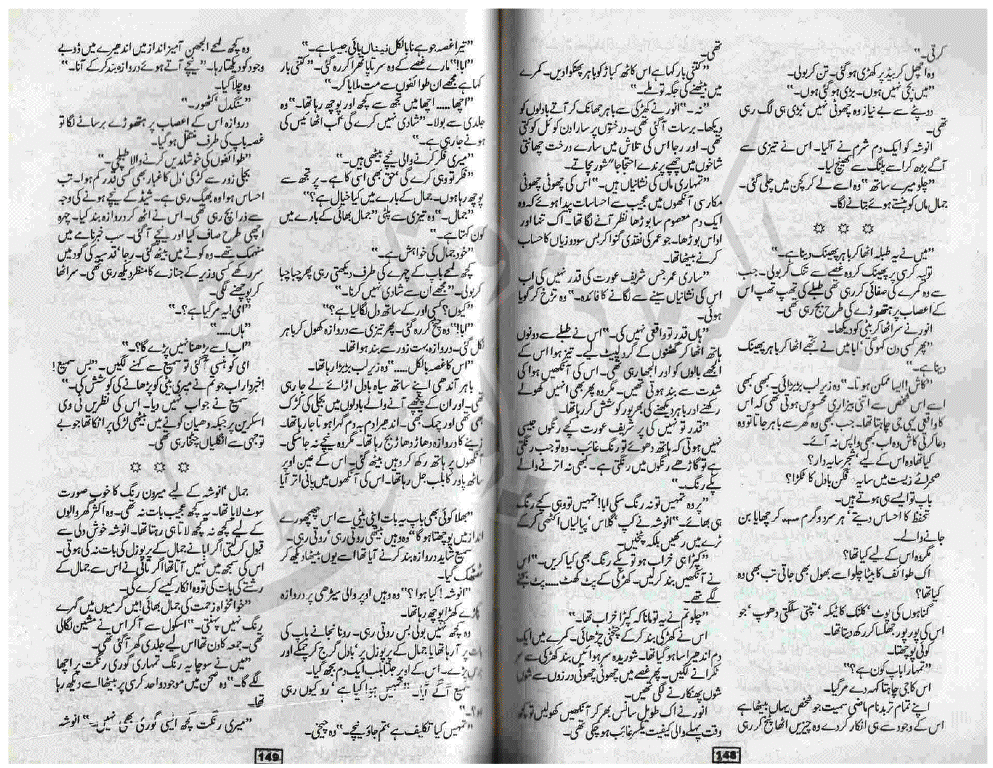 کرتی۔"
وہ اچھل کر بیڈ پر کھڑی ہو گئی۔ تن کر بولی۔
"میں بچی نہیں ہوں۔ بڑی ہو گئی ہوں۔"
دوپٹے سے بے نیاز وہ چھوٹی نہیں' بڑی ہی لگ رہی
تھی۔
انوشہ کو ایک دم شرم نے آلیا۔ اس نے تیزی سے
آگے بڑھ کر اسے پلنگ سے کھینچ لیا۔
"چلو میرے ساتھ" وہ اسے لے کر کچن میں چلی گئی۔
جمال ماں کو ہنستے ہوئے بتانے لگا۔
☼ ☼ ☼
"میں نے یہ طبلہ اٹھا کر باہر پھینک دینا ہے۔"
تولیہ کرسی پر پھینک کر وہ غصے سے تنک کر بولی۔ جب
سے وہ کمرے کی صفائی کر رہی تھی طبلے کی تھپ تھپ اس
کے اعصاب پر ہتھوڑے کی طرح بج رہی تھی۔
انور نے سر اٹھا کر بیٹی کو دیکھا۔
"پھر کسی دن کہو گی' ابا میں نے تجھے اٹھا کر باہر پھینک
دینا ہے۔"
"کاش! ایسا ممکن ہوتا۔" وہ زیر لب بڑبڑائی۔ کبھی کبھی
اسے اس شخص سے اتنی بیزاری محسوس ہوتی تھی کہ اس
کا واقعی یہی جی چاہتا تھا۔ جب بھی وہ گھر سے باہر جاتا تو وہ
دعا کرتی کاش وہ اب کبھی واپس نہ آئے۔
کیا تھا وہ اس کے لیے؟ شجر سایہ دار؟
صحرائے زیست میں سایہ فگن بادل کا ٹکڑا؟
باپ تو ایسے ہی ہوتے ہیں۔
تحفظ کا احساس دیتے' ہر سرد و گرم سہہ کر چھایا بن
جانے والے۔
مگر وہ اس کے لیے کیا تھا؟
اک طوائف کا بیٹا چلو اسے بھول بھی جاتی تب بھی وہ
کیا تھا؟
گناہوں کی پوٹ' کلنک کا ٹیکہ' تپتی سلگتی دھوپ' جو
اس کی پور پور جھلسا کر رکھ دیتا تھا۔
کوئی پوچھتا۔
"تمہارا باپ کون ہے؟"
اس کا جی چاہتا کہہ دے مر گیا۔
اپنے تمام تر بدنام ماضی سمیت جو شخص یہاں بیٹھا ہے
اس کے وجود سے ہی انکار کر دے وہ چیزیں اٹھا پٹخ کر رہی
تھی۔
"کتنی بار کہا ہے اس کاٹھ کباڑ کو باہر پھنکوا دیں۔ کمرے
میں بیٹھنے کی جگہ تو ملے۔"
"نہ۔" انور نے کھڑکی سے باہر جھانک کر آتے بادلوں کو
دیکھا۔ برسات آ گئی تھی۔ درختوں پر سارا دن کوئل کوکتی
تھی۔ اور رجا اس کی تلاش میں سارے درخت چھانتی
شاخوں میں چھپے پرندے احتجاجا" شور مچاتے۔
"تمہاری ماں کی نشانیاں ہیں۔" اس کی چھوٹی چھوٹی
مکار سی آنکھوں میں عجیب سے احساسات پیدا ہوئے کہ وہ
ایک دم معصوم سا بوڑھا نظر آنے لگا تھا۔ اک تنہا اور
اداس بوڑھا۔ جو عمر کی نقدی گنوا کر بس سود و زیاں کا حساب
کرنے بیٹھا تھا۔
"ساری عمر جس شریف عورت کی قدر نہیں کی اب
اس کی نشانیاں سینے سے لگانے کا فائدہ۔" وہ تڑخ کر گویا
ہوئی۔
"ہاں قدر تو واقعی نہیں کی۔" اس نے طبلے سے دونوں
ہاتھ اٹھا کر گھٹنوں کے گرد لپیٹ لیے۔ تیز ہوا اس کے
الجھے بالوں کو اور الجھا رہی تھی۔ اس کی آنکھیں ہوا کی
شدت سے بند ہوتی تھیں۔ مگر وہ پھر بھی انہیں کھولے
رکھنے اور باہر دیکھنے کی بھرپور کوشش کر رہا تھا۔
"قدر تو نہیں کی پر شریف عورت کچے رنگوں جیسی
نہیں ہوتی کہ ہاتھ دھوئے تو رنگ غائب۔ وہ تو جب رنگتی
ہے تو گاڑھے رنگوں میں رنگتی ہے۔ کبھی نہ اترنے والے
پکے رنگ۔"
"پر وہ تمہیں تو نہ رنگ سکی ابا! تمہیں تو وہی کچے رنگ
ہی بھائے۔" انوشہ نے کپ' گلاس' پیالیاں اکٹھی کر کے
ٹرے میں رکھیں بلکہ پٹخیں۔
"کپڑا ہی خراب ہو تو پکے رنگ بھی کیا کریں۔" اس
نے آنکھیں بند کر لیں۔ کھڑکی کے پٹ کھٹ.... پٹ بجنے
لگے تھے۔
"چلو تم نے یہ تو مانا کہ کپڑا خراب تھا۔"
اس نے کھڑکی بند کر کے چٹخنی چڑھائی۔ کمرے میں ایک
دم اندھیرا سا ہو گیا تھا۔ شوریدہ سر ہوائیں بند کھڑکی سے سر
ٹکرانے لگیں۔ پھر غصے میں چھوٹی چھوٹی درزوں سے شوں
شوں پھنکارنے لگی تھیں۔
انور نے اک طویل سانس بھر کر آنکھیں کھولیں تو کچھ
وقت پہلے والی کیفیت یکسر غائب ہو چکی تھی۔
148
"تیرا غصہ جو ہے نا بالکل نیناں بائی جیسا ہے۔"
"ابا!" مارے غصے کے وہ سرتاپا تھرا کر رہ گئی۔ "کتنی بار
کہا ہے مجھے ان طوائفوں سے مت ملایا کر۔"
"اچھا..... اچھا میں تجھ سے کچھ اور پوچھ رہا تھا۔" وہ
جلدی سے بولا۔ "شادی نہیں کرے گی' اب اٹھائیس کی
ہونے جا رہی ہے۔"
"میری فکر کرنے والی نیچے بیٹھی ہیں۔"
"فکر تو وہی کرے گی' حق بھی اسی کا ہے۔ پر تجھ سے
پوچھ رہا ہوں۔ جمال کے بارے میں کیا خیال ہے؟"
"جمال۔" وہ تیزی سے پلٹی "جمال بھائی کے بارے میں
کون کہتا ہے۔"
"خود جمال کی خواہش ہے۔"
کچھ لمحے باپ کے چہرے کی طرف دیکھتی رہی پھر چبا چبا
کر بولی۔ "مجھے ان سے شادی نہیں کرنا۔"
"کیوں؟ کسی اور کے ساتھ دل لگا لیا ہے؟"
"ابا!" وہ چیخ کر رہ گئی۔ پھر تیزی سے دروازہ کھول کر باہر
نکل گئی۔ دروازہ بہت زور سے بند ہوا تھا۔
"اس کا غصہ بالکل....." وہ زیر لب بڑبڑا رہا تھا۔
باہر آندھی اپنے ساتھ سیاہ بادل اڑائے لے جا رہی
تھی۔ اور ان کے پیچھے آنے والے بادلوں میں بجلی کی کڑک
بھی تھی اور چمک بھی۔ اندھیرا دم بہ دم گہرا ہوتا جا رہا تھا۔
زینے کا دروازہ دھاڑ دھاڑ بج رہا تھا۔ مگر وہ نیچے نہ جا سکی۔
آنکھوں پر ہاتھ رکھ کر وہیں بیٹھ گئی۔ اس کے عین اوپر
ساٹھ پاور کا بلب جل رہا تھا۔ اس کی آنکھوں میں پانی اتر آیا
"بھلا کوئی بھی باپ یہ بات اپنی بیٹی سے اس چھچھورے
انداز میں پوچھتا ہو گا" وہ وہیں بیٹھی روتی رہی' روتی رہی۔
سمیع شاید دروازہ بند کرنے آیا تھا اسے یوں بیٹھا دیکھ کر
ٹھٹک گیا۔
"انوشہ! کیا ہوا؟" وہ وہیں اوپر والی سیڑھی پر دروازہ
پکڑے کھڑا پوچھ رہا تھا۔
وہ کچھ نہیں بولی بس روتی رہی۔ رونا نجانے باپ کی
بات پر آ رہا تھا یا جمال کے پرپوزل پر' بادل گرج کر چمکے اور
برس پڑے۔ اس کے اوپر جلتا بلب ایک دم بجھ گیا۔
سمیع آگے آیا۔ "تمہیں ہوا کیا ہے' رو کیوں رہی
ہو؟۔"
"تمہیں کیا تکلیف ہے' تم جاؤ نیچے۔" وہ چیخی۔
وہ کچھ لمحے الجھن آمیز انداز میں اندھیرے میں ڈوبے
وجود کو دیکھتا رہا۔ "نیچے آتے ہوئے دروازہ بند کر کے آنا۔"
وہ چلا گیا۔
"سنگدل' کٹھور۔"
دروازہ اس کے اعصاب پر ہتھوڑے برسانے لگا تو
غصہ باپ کی طرف منتقل ہو گیا۔
"طوائفوں کی خوشامدیں کرنے والا طبلچی۔"
بجلی زور سے کڑکی' دل کا غبار بھی کسی قدر کم ہوا۔ تب
احساس ہوا وہ بھیگ رہی ہے۔ شیڈ کے نیچے ہونے کی وجہ
سے ذرا بچ رہی تھی۔ اس نے اٹھ کر دروازہ بند کیا۔ چہرہ
اچھی طرح صاف کیا اور نیچے آ گئی۔ سب خبرنامے میں
منہمک تھے۔ وہ کونے میں بیٹھ گئی۔ رجا' قدسیہ کی گود میں
سر رکھے کسی وزیر کے جنازے کا منظر دیکھ رہی تھی۔ سر اٹھا
کر پوچھنے لگی۔
"امی! یہ مر گیا ہے؟"
"ہاں....."
"اب اسے پڑھنا نہیں پڑے گا؟"
امی کو ہنسی آ گئی تو سمیع سے کہنے لگیں۔ "بس سمیع!
خبردار اب جو تم نے میری بیٹی کو پڑھانے کی کوشش کی۔"
سمیع نے جواب نہیں دیا۔ اس کی نظریں ٹی وی
اسکرین پر جبکہ دھیان کونے میں بیٹھی لڑکی پر اٹکا تھا جو بے
توجہی سے انگلیاں چٹخا رہی تھی۔
☼ ☼ ☼
جمال' انوشہ کے لیے میرون رنگ کا خوب صورت
سوٹ لایا تھا۔ یہ کچھ عجیب بات نہ تھی۔ وہ اکثر گھر والوں
کے لیے کچھ نہ کچھ لاتا ہی رہتا تھا۔ انوشہ خوش دلی سے
قبول کر لیتی اگر ابا نے جمال کے پرپوزل کی بات نہ کی ہوتی۔
اس کی سمجھ میں نہیں آتا تھا اگر تائی نے اس سے جمال کے
رشتے کی بات کی تو وہ انکار کیسے کرے گی۔
"خوامخواہ زحمت کی جمال بھائی! میں گرمیوں میں گہرے
رنگ نہیں پہنتی۔" اسکول سے آ کر اس نے مشین لگا لی
تھی۔ جمعہ کا دن تھا اس لیے جلدی گھر آ گئی تھی۔
"میں نے سوچا یہ رنگ تمہاری گوری رنگت پر اچھا
لگے گا۔" وہ صحن میں موجود واحد کرسی پر بیٹھا اسے دیکھ رہا
تھا۔
"میری رنگت کچھ ایسی گوری بھی نہیں۔" انوشہ
149